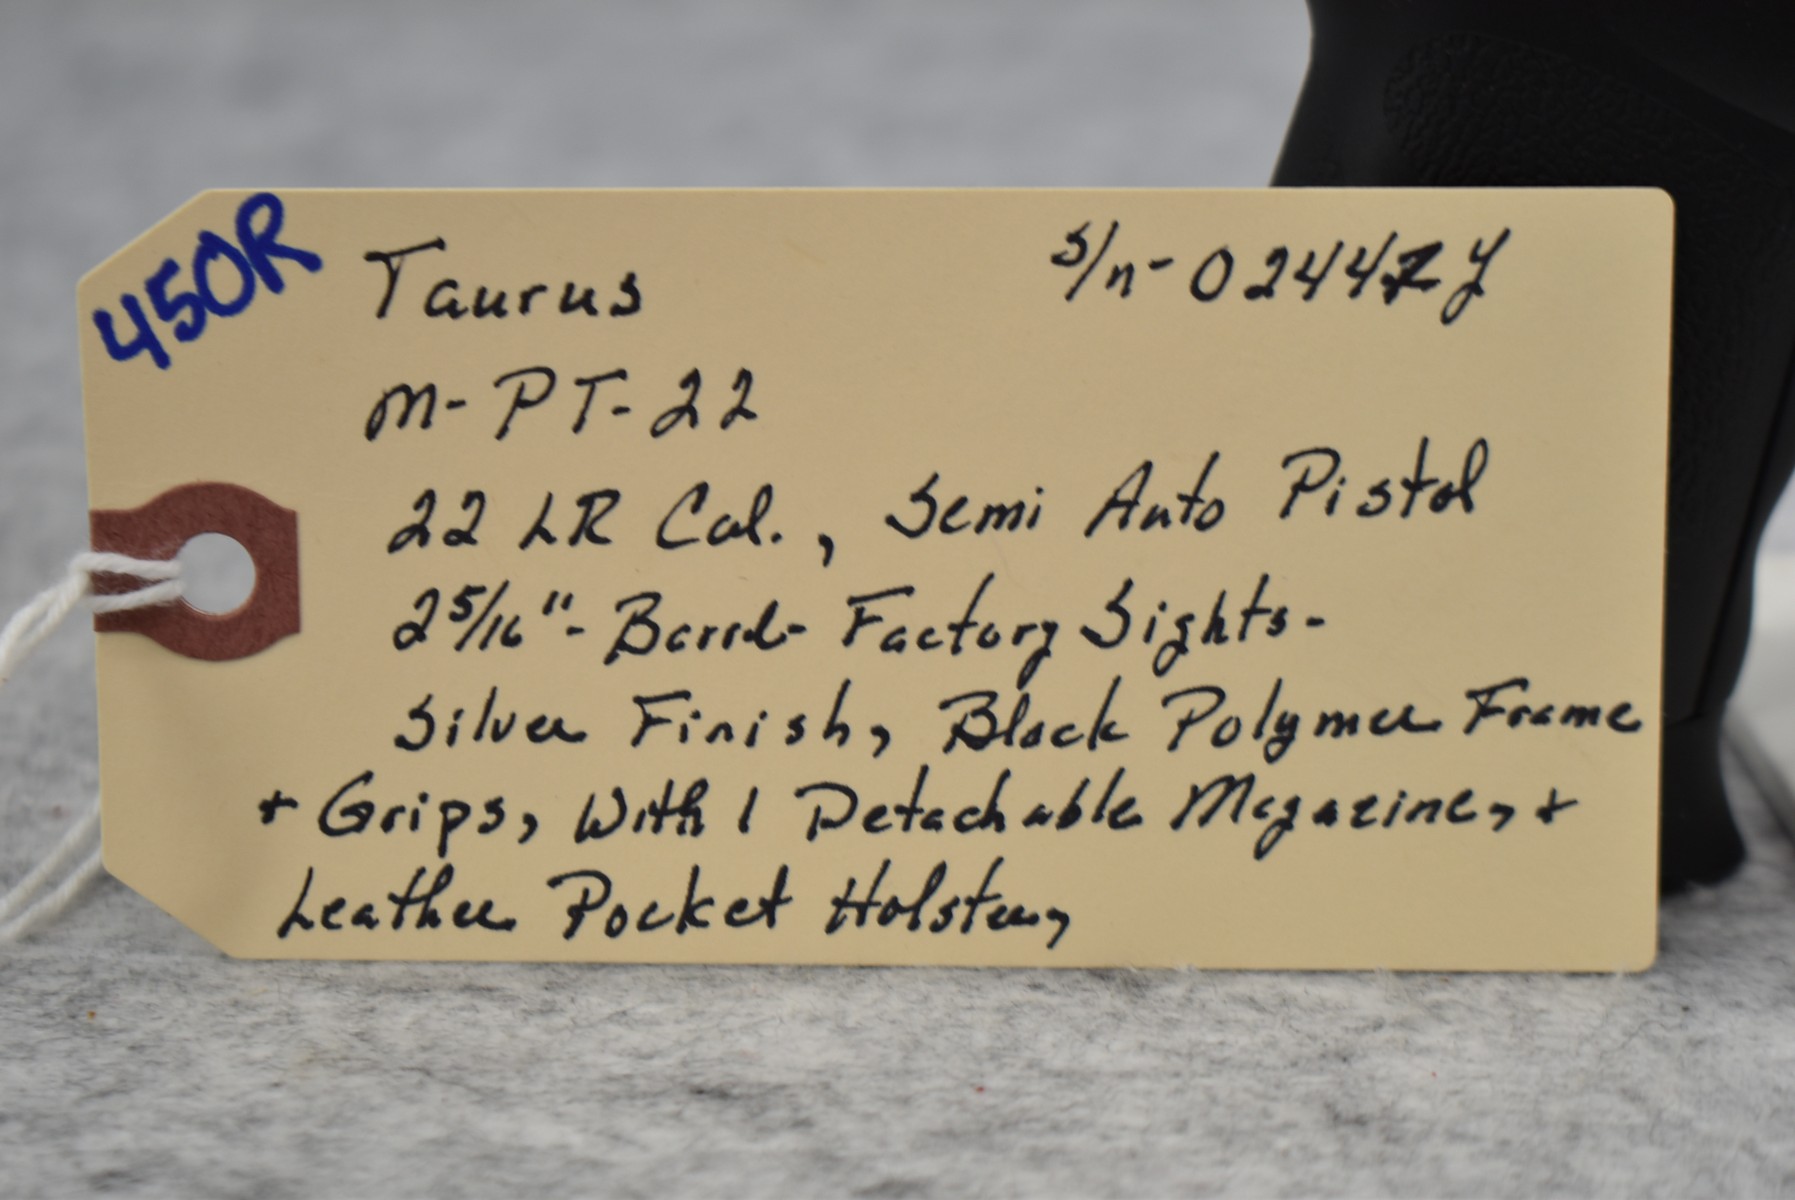 450R
Taurus s/n-02447Y
M-PT-22
22 LR Cal., Semi Auto Pistol
2 5/16"- Barrel- Factory Sights-
Silver Finish, Black Polymer Frame
+ Grips, With 1 Detachable Magazine, +
Leather Pocket Holster,